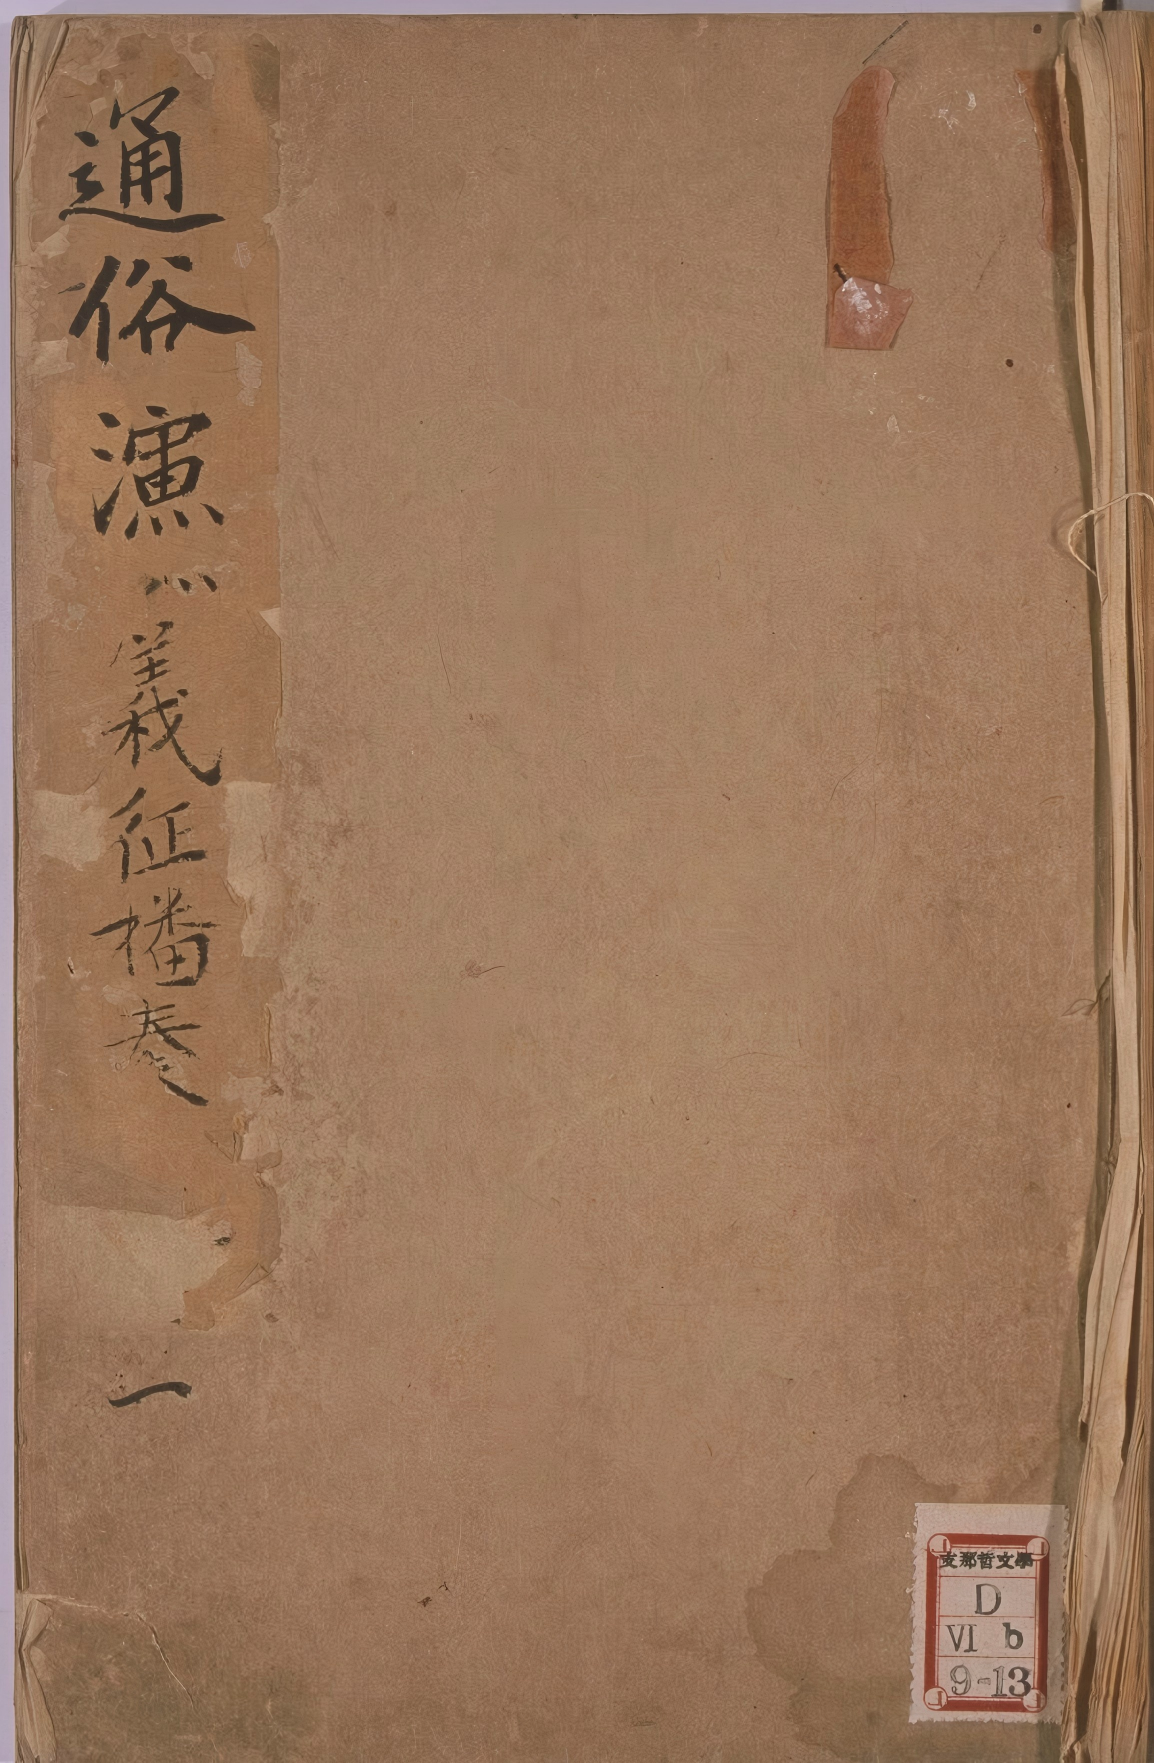 通俗演義征播奏
一
支那哲文學
D
VI b
9-13